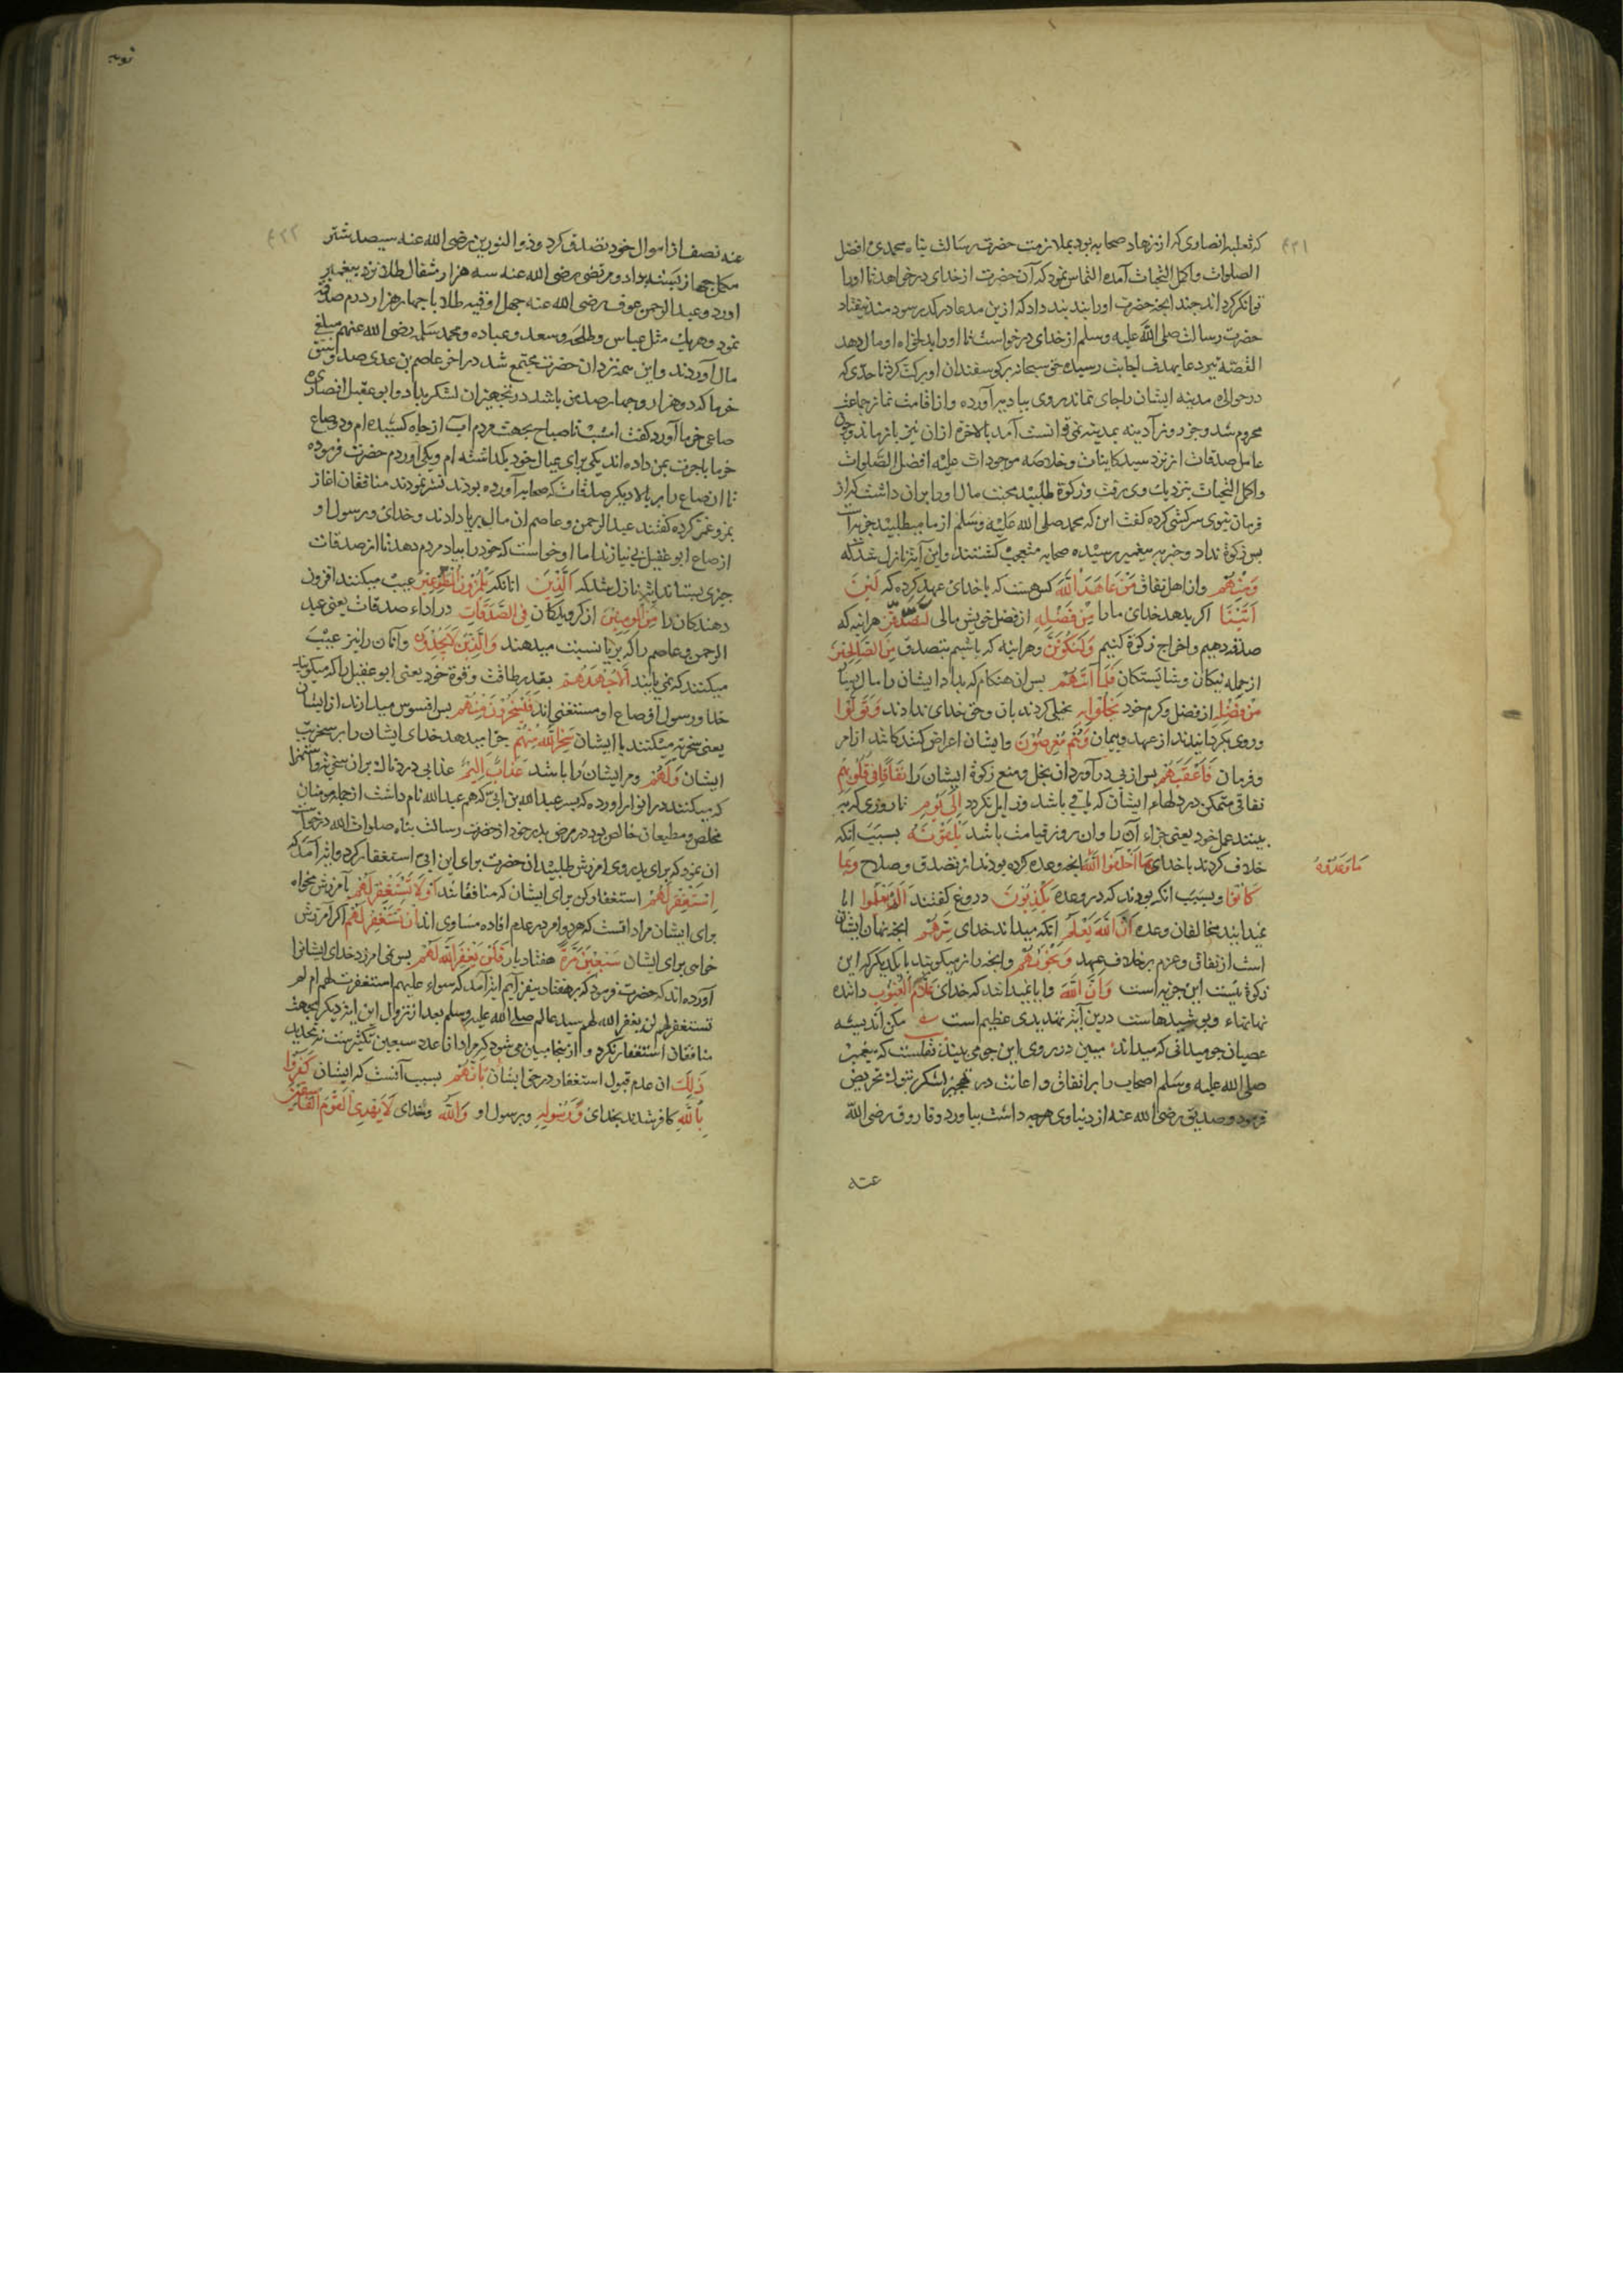 ۴۳۱
که ثعلبه انصاری که از زهاد صحابه بود بملازمت حضرت رسالت پناه محمدی افضل
الصلوات واکمل التحیات آمده التماس نمود که آن حضرت از خدای درخواهد تا اورا
توانکر کرداند چند انچه حضرت اورا پند داد که ازین مدعا درکذر سودمند نیفتاد
حضرت رسالت صلی الله علیه وسلم از خدای درخواست تا اورا بدلخواه او مال دهد
القصه تیر دعا بهدف اجابت رسیده حق سبحانه بر کوسفندان او برکت کرد تا حدی که
در حوالی مدینه ایشان را جای نماند روی ببادیه آورده و از اقامت نماز جماعت
محروم شد و جز روز آدینه بمدینه نمی توانست آمد بالاخره ازان نیز بازماند و چون
عامل صدقات از نزد سید کاینات وخلاصه موجودات علیه افضل الصلوات
واکمل التحیات بنزدیک وی رفت و زکوة طلبید محبت مال اورا بران داشت که از
فرمان نبوی سرکشی کرده کفت این که محمد صلی الله علیه وسلم از ما میطلبد جزیه است
پس زکوة نداد و خبر به پیغمبر رسیده صحابه متعجب کشتند واین آیة نازل شد که
وَمِنْهُم وازاهل نفاق مَنْ عَاهَدَ اللَّهَ کس هست که باخدای عهد کرده که لَئِنْ
آتَيْنَا اکر بدهد خدای مارا مِنْ فَضْلِهِ از فضل خویش مالی لَنَصَّدَّقَنَّ هراینه که
صدقه دهیم واخراج زکوة کنیم وَلَنَكُونَنَّ وهراینه که باشیم بتصدق مِنَ الصَّالِحِينَ
ازجمله نیکان وشایستکان فَلَمَّا آتَاهُمْ پس ان هنکام که بداد ایشان را مال بسیا
مِنْ فَضْلِهِ از فضل وکرم خود بَخِلُوا بِهِ بخیلی کردند بان وحق خدای ندادند وَتَوَلَّوْا
وروی بکردانیدند از عهد وپیمان وَهُمْ مُعْرِضُونَ وایشان اعراض کنندکاند از امر
وفرمان فَأَعْقَبَهُمْ پس از پی درآورد ان بخل ومنع زکوة ایشان را نِفَاقًا فِي قُلُوبِهِمْ
نفاقی متمکن در دلهاء ایشان که باقی باشد وزایل نکردد إِلَى يَوْمِ تا روزی که
بینند عمل خود یعنی جزاء آن را وان روز قیامت باشد يَلْقَوْنَهُ بسبب انکه
خلاف کردند باخدای بِمَا أَخْلَفُوا اللَّهَ انچه وعده کرده بودند از تصدق وصلاح وَبِمَا
مَا وَعَدُوهُ
كَانُوا وبسبب انکه بودند که در وعده يَكْذِبُونَ دروغ کفتند أَلَمْ يَعْلَمُوا ایا
نمیدانند مخالفان وعده أَنَّ اللَّهَ يَعْلَمُ انکه میداند خدای سِرَّهُمْ انچه نهان ایشان
است از نفاق وعزم بر خلاف عهد وَنَجْوَاهُمْ وانچه راز میکویند بایکدیکر که این
زکوة نیست این جزیه است وَأَنَّ اللَّهَ وایا نمیدانند که خدای عَلَّامُ الْغُيُوبِ داننده
نهانهاء وپوشیدهاست درین آیة تهدیدی عظیم است مکن اندیشه
عصیان چو میدانی که میداند مبین در روی این جو می بیند نقلست که پیغمبر
صلی الله علیه وسلم اصحاب را بر انفاق واعانت در تجهیز لشکر تبوک تحریض
فرمود وصدیق رضی الله عنه از دنیاوی هرچه داشت بیاورد وفاروق رضی الله
عنه
توبه
۴۲۲
عنه نصف از اموال خود تصدق کرد وذوالنورین رضی الله عنه سیصد شتر
مکمل جهاز بسته بداد ومرتضی رضی الله عنه سه هزار مثقال طلا نزد پیغمبر
اورد وعبدالرحمن عوف رضی الله عنه چهل اوقیه طلا با چهار هزار درم صدقه
نمود وهریک مثل عباس وطلحه وسعد وعباده ومحمد سلمه رضی الله عنهم مبلغ
مال آوردند واین همه نزد ان حضرت مجتمع شد در اخر عاصم بن عدی صد وسق
خرما که دو هزار وچهار صد من باشد در تجهیز ان لشکر بداد وابو عقیل انصاری
صاعی خرما آورد کفت امشب تا صباح بجهت مردم آب از چاه کشیده ام ودو صاع
خرما باجرت بمن داده اند یکی برای عیال خود بکذاشته ام ویکی آوردم حضرت فرموده
تا ان صاع را بر بالا دیکر صدقات که صحابه آورده بودند نثر نمودند منافقان اغاز
همز وغمز کرده کفتند عبدالرحمن وعاصم ان مال بریا دادند وخدای ورسول او
از صاع ابو عقیل بی نیازند اما او خواست که خود را بیاد مردم دهد تا از صدقات
چیزی بستاند ایة نازل شد که الَّذِينَ انانکه يَلْمِزُونَ الْمُطَّوِّعِينَ عیب میکنند افزون
دهندکان را مِنَ الْمُؤْمِنِينَ از کرویدکان فِي الصَّدَقَاتِ در اداء صدقات یعنی عبد
الرحمن وعاصم را که بریا نسبت میدهند وَالَّذِينَ لَا يَجِدُونَ وآنان را نیز عیب
میکنند که نمی یابند إِلَّا جُهْدَهُمْ بقدر طاقت وقوة خود یعنی ابو عقیل را که میکویند
خدا ورسول از صاع او مستغنی اند فَيَسْخَرُونَ مِنْهُمْ پس افسوس میدارند از ایشان
یعنی سخریه میکنند با ایشان سَخِرَ اللَّهُ مِنْهُمْ جزا میدهد خدای ایشان را بر سخریت
ایشان وَلَهُمْ ومر ایشان را باشد عَذَابٌ أَلِيمٌ عذابی دردناک بران سخریه واستهزا
که میکنند در انوار اورده که پسر عبدالله بن ابی که هم عبدالله نام داشت ازجمله مومنان
مخلص ومطیعان خالص بود در مرض پدر خود از حضرت رسالت پناه صلوات الله درخواست
ان نمود که برای پدر وی امرزش طلبید ان حضرت برای ابن ابی استغفار کرد وایة آمد که
اسْتَغْفِرْ لَهُمْ استغفار کن برای ایشان که منافقانند أَوْ لَا تَسْتَغْفِرْ لَهُمْ یا آمرزش مخواه
برای ایشان مراد انست که هر دو امر در عدم افاده مساوی اند إِنْ تَسْتَغْفِرْ لَهُمْ اکر آمرزش
خواهی برای ایشان سَبْعِينَ مَرَّةً هفتاد بار فَلَنْ يَغْفِرَ اللَّهُ لَهُمْ پس نمی امرزد خدای ایشانرا
آورده اند که حضرت فرمود که بر هفتاد بیفزایم ایة آمد که سواء علیهم استغفرت لهم ام لم
تستغفر لهم لن یغفر الله لهم سید عالم صلی الله علیه وسلم بعد از نزول این ایة دیکر بجهت
منافقان استغفار نکرد واز ینجا مبین می شود که مراد از عدد سبعین تکثیرست نه تحدید
ذَلِكَ ان عدم قبول استغفار در حق ایشان بِأَنَّهُمْ بسبب آنست که ایشان كَفَرُوا
بِاللَّهِ کافر شدند بخدای وَرَسُولِهِ وبرسول او وَاللَّهُ وخدای لَا يَهْدِي الْقَوْمَ الْفَاسِقِينَ